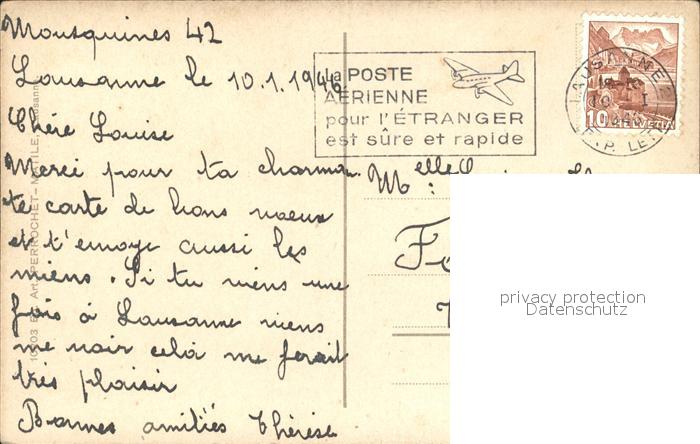 Mousquines 42
Lausanne le 10.1.1946
Chère Louise
Merci pour ta charman-
te carte de bons voeux
et t'envoye aussi les
miens. Si tu viens une
fois à Lausanne viens
me voir celà me ferait
très plaisir
Bonnes amitiés Thérèse
La POSTE
AÉRIENNE
pour l'ÉTRANGER
est sûre et rapide
LAUSANNE
EXP. LET
10 HELVETIA
Melle
privacy protection
Datenschutz
PERROCHET-MATILE, Lausanne